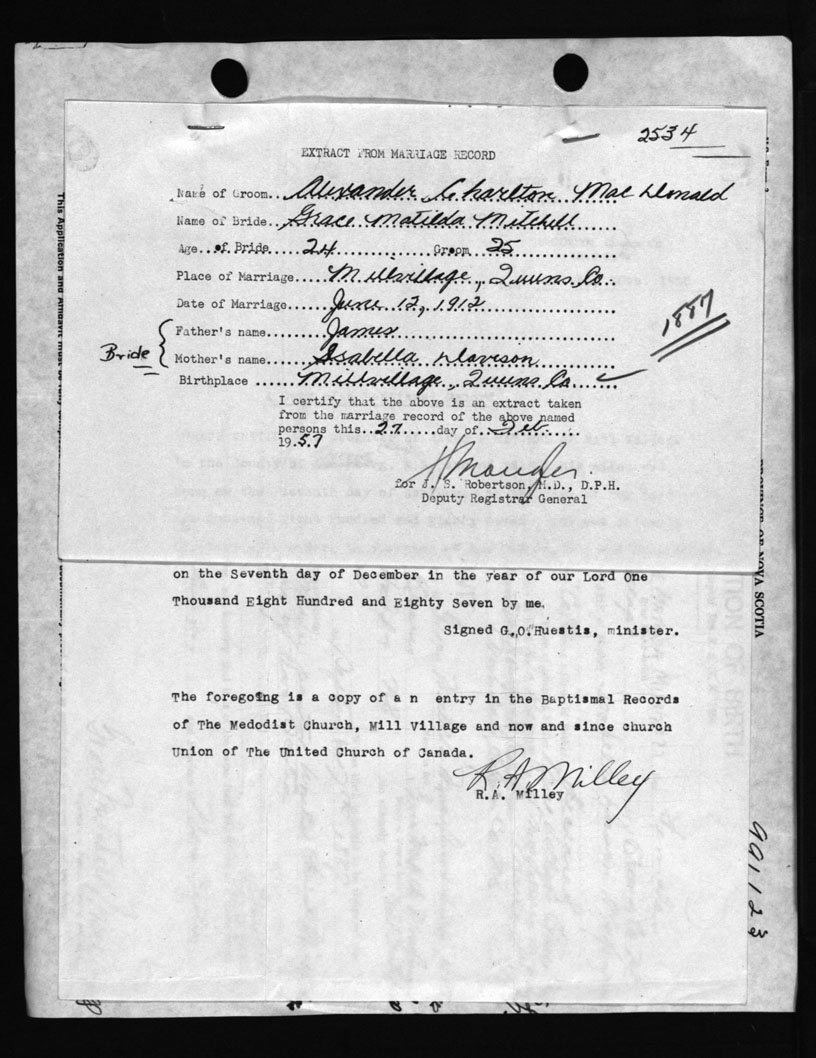 2534
EXTRACT FROM MARRIAGE RECORD
Name of Groom...Alexander Charlton Mac Donald
Name of Bride..Grace Matilda Mitchell
Age..of Bride...24...............Groom..25
Place of Marriage....Millvillage, Queens Co..
Date of Marriage....June 12, 1912
1887
Father's name.......James
Bride
Mother's name.......Isabella Davison
Birthplace ......Millvillage, Queens Co.
I certify that the above is an extract taken
from the marriage record of the above named
persons this..27.....day of..Feb......
19.57
for J. S. Robertson, M.D., D.P.H.
Deputy Registrar General
This Application and Affidavit must be
PROVINCE OF NOVA SCOTIA
on the Seventh day of December in the year of our Lord One
Thousand Eight Hundred and Eighty Seven by me.
Signed G.O.Huestis, minister.
The foregoing is a copy of a n entry in the Baptismal Records
of The Medodist Church, Mill Village and now and since church
Union of The United Church of Canada.
R. A. Milley
R.A. Milley
991123